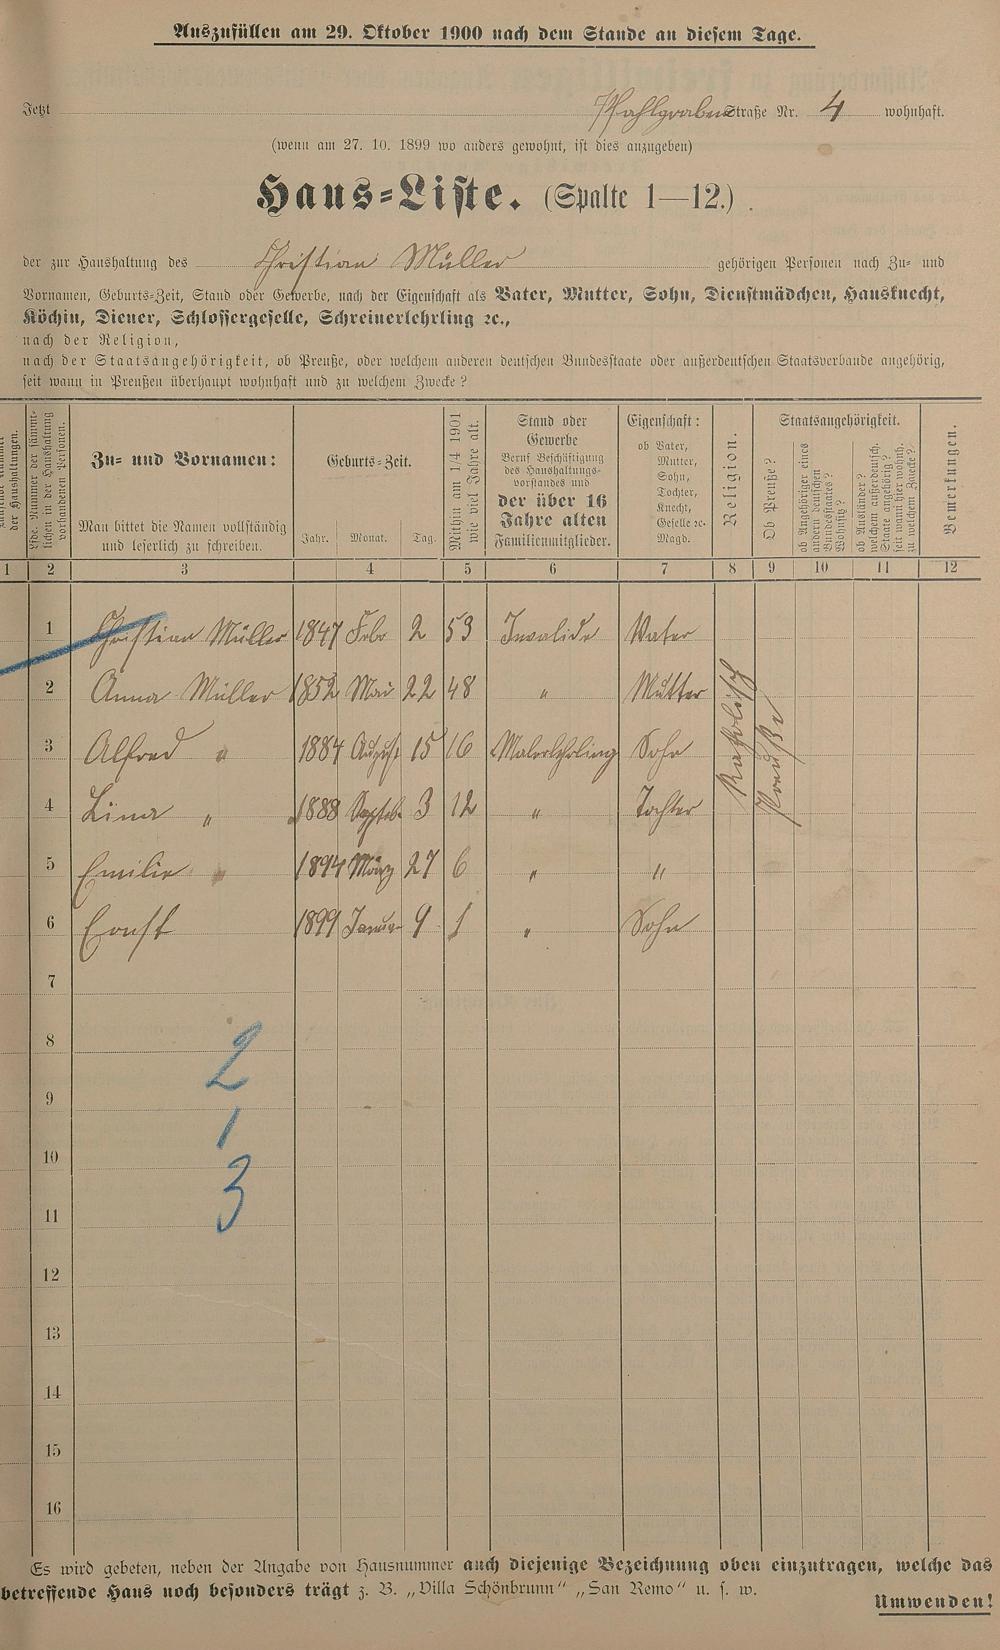 Auszufüllen am 29. Oktober 1900 nach dem Stande an diesem Tage.
Jetzt Pfahlgraben Straße Nr. 4 wohnhaft.
(wenn am 27. 10. 1899 wo anders gewohnt, ist dies anzugeben)
Haus-Liste. (Spalte 1—12.)
der zur Haushaltung des Christian Müller gehörigen Personen nach Zu- und
Vornamen, Geburts-Zeit, Stand oder Gewerbe, nach der Eigenschaft als Vater, Mutter, Sohn, Dienstmädchen, Hausknecht,
Köchin, Diener, Schlossergeselle, Schreinerlehrling ꝛc.,
nach der Religion,
nach der Staatsangehörigkeit, ob Preuße, oder welchem anderen deutschen Bundesstaate oder außerdeutschen Staatsverbande angehörig,
seit wann in Preußen überhaupt wohnhaft und zu welchem Zwecke?
Nummer
der Haushaltungen.
Lfde. Nummer der sämmt-
lichen in der Haushaltung
vorhandenen Personen.
Zu- und Vornamen:
Man bittet die Namen vollständig
und leserlich zu schreiben.
Geburts-Zeit.
Jahr. Monat. Tag.
Mithin am 1/4 1901
wie viel Jahre alt.
Stand oder
Gewerbe
Beruf Beschäftigung
des Haushaltungs-
vorstandes und
der über 16
Jahre alten
Familienmitglieder.
Eigenschaft:
ob Vater,
Mutter,
Sohn,
Tochter,
Knecht,
Geselle ꝛc.
Magd.
Religion.
Staatsangehörigkeit.
Ob Preuße?
ob Angehöriger eines
andern deutschen
Bundesstaates?
Wohnsitz?
ob Ausländer?
welchem außerdeutsch.
Staate angehörig?
seit wann hier wohnh.
zu welchem Zwecke?
Bemerkungen.
1 2 3 4 5 6 7 8 9 10 11 12
1 Christian Müller 1847 Febr 2 53 Invalide Vater
2 Anna Müller 1852 Mai 22 48 " Mutter
3 Alfred " 1884 August 15 16 Malerlehrling Sohn
4 Lina " 1888 Septeb. 3 12 " Tochter
5 Emilie " 1894 März 27 6 " "
6 Ernst 1899 Januar 9 1 " Sohn
Katholisch
Preuße
7
8
2
9
1
10
3
11
12
13
14
15
16
Es wird gebeten, neben der Angabe von Hausnummer auch diejenige Bezeichnung oben einzutragen, welche das
betreffende Haus noch besonders trägt z. B. „Villa Schönbrunn" „San Remo" u. s. w.
Umwenden!